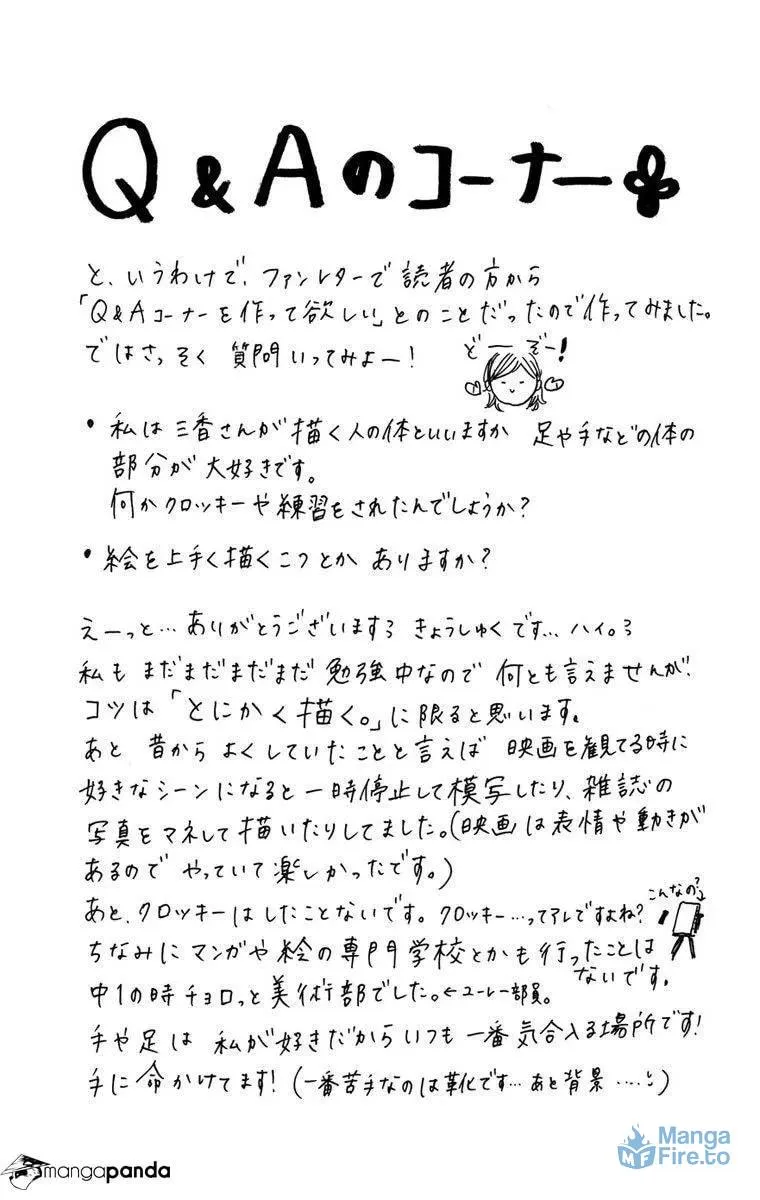 Q&Aのコーナー
と、いうわけで、ファンレターで読者の方から
「Q&Aコーナーを作って欲しい」とのことだったので作ってみました。
ではさっそく 質問いってみよー!
どーぞー!
・私は三香さんが描く人の体といいますか 足や手などの体の
部分が大好きです。
何かクロッキーや練習をされたんでしょうか?
・絵を上手く描くこつとか ありますか?
えーっと…ありがとうございますろ きょうしゅくです…ハイ。ろ
私も まだまだまだまだ 勉強中なので 何とも言えませんが、
コツは「とにかく描く。」に限ると思います。
あと 昔から よくしていたことと言えば 映画を観てる時に
好きなシーンになると 一時停止して模写したり、雑誌の
写真をマネして描いたりしてました。(映画は表情や動きが
あるので やっていて楽しかったです。)
あと、クロッキーはしたことないです。クロッキー…ってアレですよね?
こんなの?
ちなみにマンガや絵の専門学校とかも行ったことは
ないです。
中1の時チョロっと美術部でした。←ユーレー部員。
手や足は 私が好きだからいつも 一番気合入る場所です!
手に命かけてます!(一番苦手なのは革靴です…あと背景……)
mangapanda
Manga
Fire.to
MF